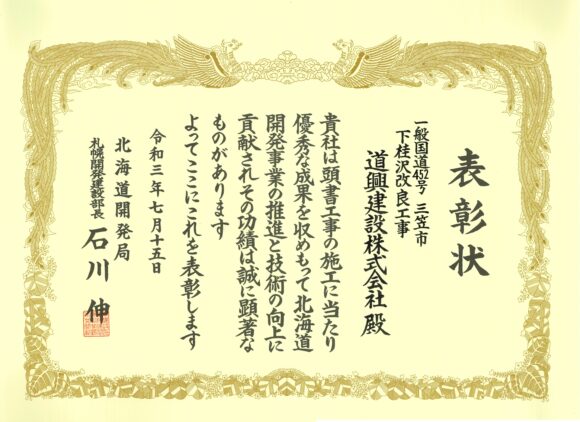 表彰状
一般国道452号 三笠市
下桂沢改良工事
道興建設株式会社 殿
貴社は頭書工事の施工に当たり
優秀な成果を収めもって北海道
開発事業の推進と技術の向上に
貢献されその功績は誠に顕著な
ものがあります
よってここにこれを表彰します
令和三年七月十五日
北海道開発局
札幌開発建設部長 石川 伸